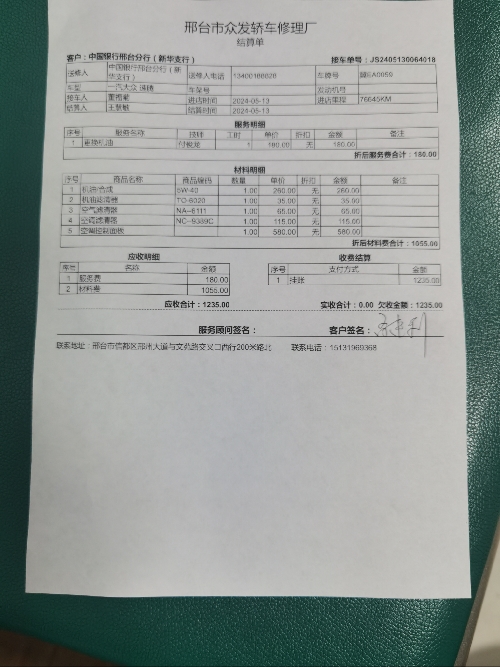 邢台市众发轿车修理厂
结算单
客户：中国银行邢台分行（新华支行） 接车单号：JS2405130064018
送修人 中国银行邢台分行（新华支行） 送修人电话 13400166828 车牌号
车型 一汽大众 速腾 车架号 发动机号
接车人 进店时间 2024-05-13 进店里程 76645KM
结算人 王慧敏 结算时间 2024-05-13
服务明细
序号 服务名称 技师 工时 单价 折扣 金额 备注
1 更换机油 付俊龙 1 180.00 无 180.00
折后服务费合计：180.00
材料明细
序号 商品名称 商品编码 数量 单价 折扣 金额 备注
1 机油/合成 5W-40 1.00 260.00 无 260.00
2 机油滤清器 TO-6020 1.00 35.00 无 35.00
3 空气滤清器 NA-6111 1.00 65.00 无 65.00
4 空调滤清器 NC-9389C 1.00 115.00 无 115.00
5 空调控制面板 1.00 580.00 无 580.00
折后材料费合计：1055.00
应收明细 收费结算
序号 名称 金额 序号 支付方式 金额
1 服务费 180.00 1 挂账 1235.00
2 材料费 1055.00
应收合计：1235.00 实收合计：0.00 欠收金额：1235.00
服务顾问签名： 客户签名：
联系地址：邢台市信都区邢州大道与文苑路交叉口西行200米路北 联系电话：15131969368